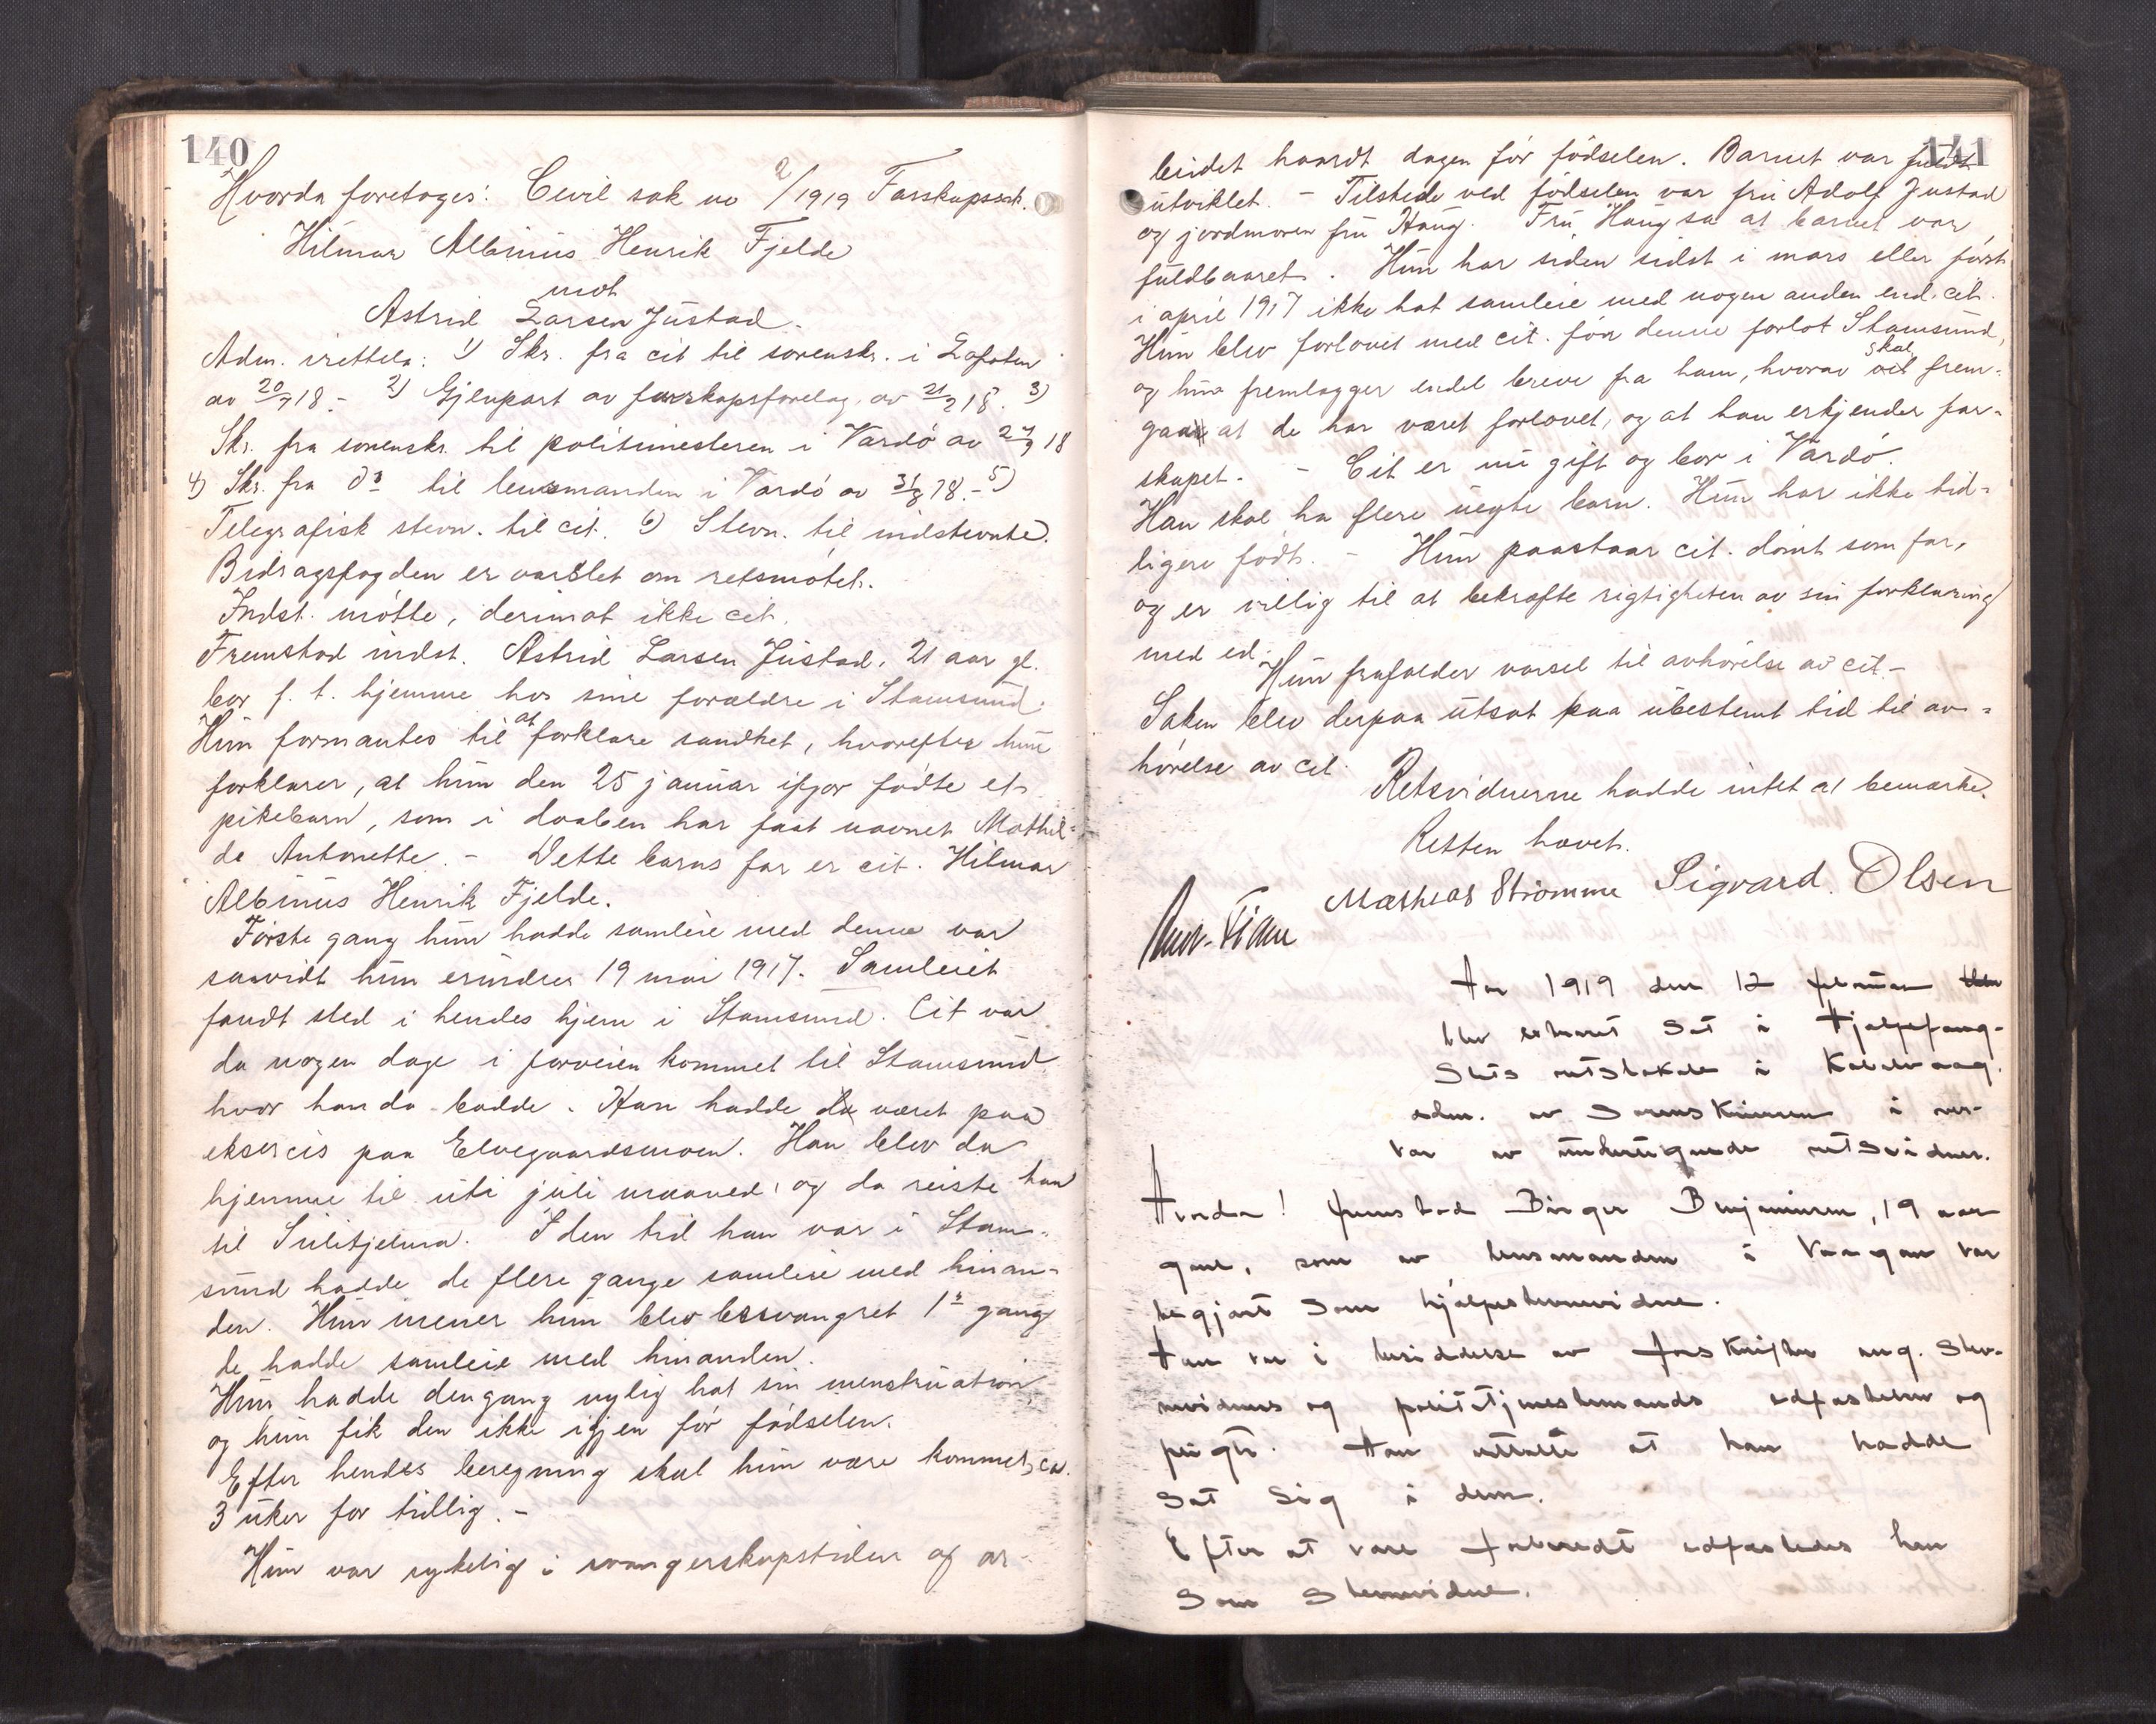 140
Hvorda foretoges: Civil sak no 2/1919 Farskapssak.
Hilmar Albinus Henrik Fjelde
mot
Astrid Larsen Justad.
Adm. irettela: 1) Skr. fra cit til sorenskr. i Lofoten
av 20/7 18.- 2) Gjenpart av farskapsforelæg. av 21/2 18. 3)
Skr. fra sorenskr. til politimesteren i Vardö av 27/7 18
4) Skr. fra do til lensmanden i Vardö av 31/8 18.- 5)
Telegrafisk stevn. til cit. 6) Stevn. til indstevnte.
Bidragsfogden er varslet om retsmötet.
Indst. mötte, derimot ikke cit.
Fremstod indst. Astrid Larsen Justad, 21 aar gl.
bor f. t. hjemme hos sine forældre i Stamsund.
Hun formantes til at forklare sandhet, hvorefter hun
forklarer, at hun den 25 januar ifjor födte et
pikebarn, som i daaben har faat navnet Mathil-
de Antonette. - Dette barns far er cit. Hilmar
Albinus Henrik Fjelde.
Förste gang hun hadde samleie med denne var
saavidt hun erindrer 19 mai 1917. Samleiet
fandt sted i hendes hjem i Stamsund. Cit var
da nogen dage i forveien kommet til Stamsund
hvor han da bodde. Han hadde da været paa
eksercis paa Elvegaardsmoen. Han blev da
hjemme til uti juli maaned, og da reiste han
til Sulitjelma. I den tid han var i Stam-
sund hadde de flere gange samleie med hinan-
den. Hun mener hun blev besvangret 1ste gang
de hadde samleie med hinanden.
Hun hadde dengang nylig hat sin menstruation
og hun fik den ikke igjen för födselen.
Efter hendes beregning skal hun være kommet ca.
3 uker for tidlig. -
Hun var sykelig i svangerskapstiden og ar-
141
beidet haardt dagen för födselen. Barnet var fuldt
utviklet. - Tilstede ved födselen var fru Adolf Justad
og jordmoren fru Haug. Fru Haug sa at barnet var
fuldbaaret. Hun har siden sidst i mars eller först
i april 1917 ikke hat samleie med nogen anden end cit.
Hun blev forlovet med cit. för denne forlot Stamsund,
og hun fremlægger endel breve fra ham, hvorav skal frem-
gaa at de har været forlovet, og at han erkjender far-
skapet. - Cit er nu gift og bor i Vardö.
Han skal ha flere uegte barn. Hun har ikke tid-
ligere födt. - Hun paastaar cit. dömt som far,
og er villig til at bekræfte rigtigheten av sin forklaring
med ed.
Hun frafalder varsel til avhörelse av cit.-
Saken blev derpaa utsat paa ubestemt tid til av-
hörelse av cit.
Retsvidnerne hadde intet at bemærke.
Retten hævet.
Mathias Strömme Sigvard Olsen
Aar 1919 den 12 februar
blev extraret sat i Hjælpefæng-
slets retslokale i Kabelvaag
adm. av Sorenskriveren i nær-
vær av undertegnede retsvidner.
Hvorda! fremstod Birger Benjaminsen, 19 aar
gml., som av lensmanden i Vaagan var
begjært som hjælpestevnevidne.
Han var i besiddelse av forskrifter ang. Stev-
nevidners og politstjenestemænds edfæstelse og
pligter. Han uttalte at han hadde
sat sig i dem.
Efter at være foreredt edfæstedes han
som Stevnevidne.